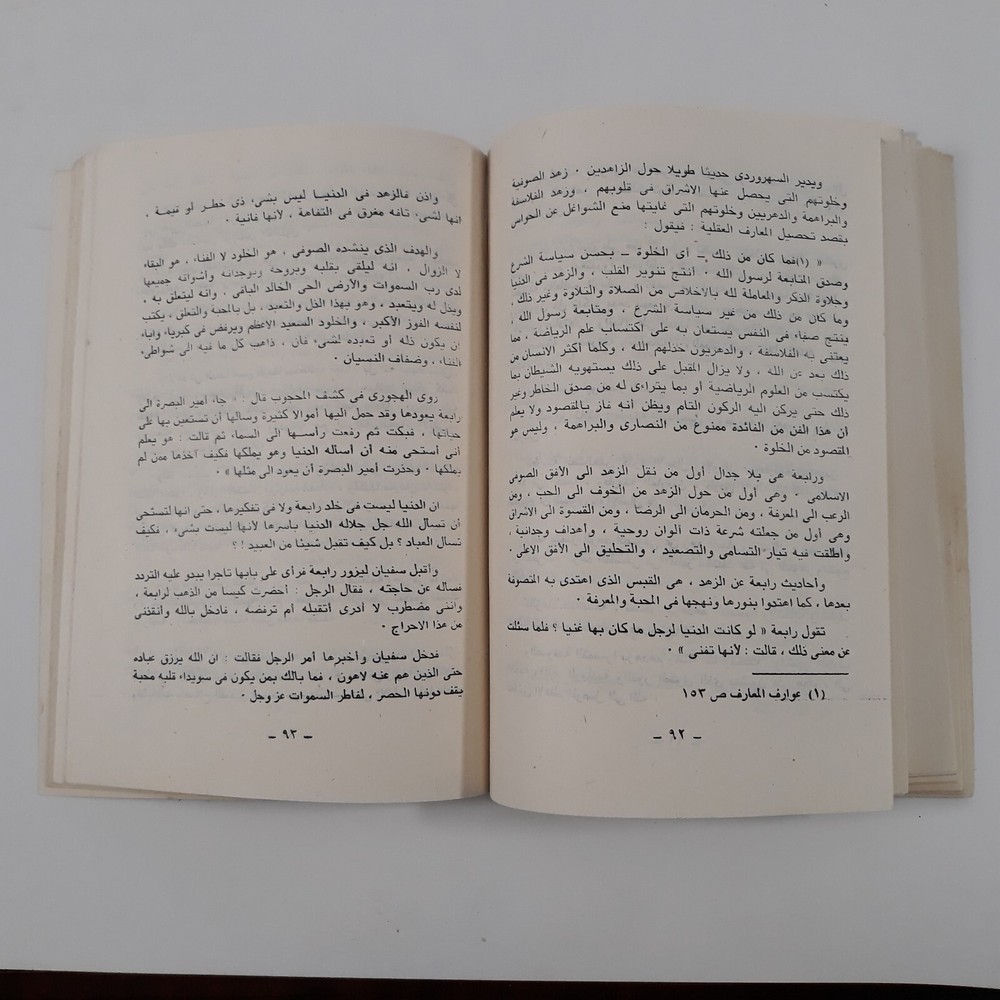 ويدير السهروردى حديثا طويلا حول الزاهدين ٠ زهد الصوفية
وخلوتهم التى يحصل عنها الاشراق فى قلوبهم ، وزهد الفلاسفة
والبراهمة والدهريين وخلوتهم التى غايتها منع الشواغل عن الحواس
بقصد تحصيل المعارف العقلية : فيقول :
« (١)فما كان من ذلك ــ أى الخلوة ــ بحسن سياسة الشرع
وصدق المتابعة لرسول الله ٠ انتج تنوير القلب ، والزهد فى الدنيا
وحلاوة الذكر والمعاملة لله بالاخلاص من الصلاة والتلاوة وغير ذلك ،
وما كان من ذلك من غير سياسة الشرع ، ومتابعة رسول الله ،
ينتج صفاء فى النفس يستعان به على اكتساب علم الرياضة ، مما
يعتنى به الفلاسفة ، والدهريون خذلهم الله ، وكلما أكثر الانسان من
ذلك بعد عن الله ، ولا يزال المقبل على ذلك يستهويه الشيطان بما
يكتسب من العلوم الرياضية أو بما يتراءى له من صدق الخاطر وغير
ذلك حتى يركن اليه الركون التام ويظن أنه فاز بالمقصود ولا يعلم
أن هذا الفن من الفائدة ممنوع من النصارى والبراهمة ، وليس هو
المقصود من الخلوة ٠
ورابعة هى بلا جدال أول من نقل الزهد الى الأفق الصوفى
الاسلامى ٠ وهى أول من حول الزهد من الخوف الى الحب ، ومن
الرعب الى المعرفة ، ومن الحرمان الى الرضا ، ومن القسوة الى الاشراق
وهى أول من جعلته شرعة ذات ألوان روحية ، وأهداف وجدانية ،
وأطلقت فيه تيار التسامى والتصعيد ، والتحليق الى الأفق الاعلى ٠
وأحاديث رابعة عن الزهد ، هى القبس الذى اهتدى به المتصوفة
بعدها ، كما اهتدوا بنورها ونهجها فى المحبة والمعرفة ٠
تقول رابعة « لو كانت الدنيا لرجل ما كان بها غنيا ؟ فلما سئلت
عن معنى ذلك ، قالت : لأنها تفنى » ٠
(١) عوارف المعارف ص ١٥٣
ــ ٩٢ ــ
واذن فالزهد فى الدنيا ليس بشىء ذى خطر لو قيمة ،
انها لشىء تافه مغرق فى التفاهة ، لأنها فانية ٠
والهدف الذى ينشده الصوفى ، هو الخلود لا الفناء ، هو البقاء
لا الزوال ٠ انه ليلقى بقلبه وبروحه وبوجدانه وأشواقه جميعها
لدى رب السموات والأرض الحى الخالد الباقى ، وانه ليتعلق به ،
ويذل له ويتعبد ، وهو بهذا الذل والتعبد ، بل بالمحبة والتعلق ، يكتب
لنفسه الفوز الأكبر ، والخلود السعيد الاعظم ويرفض فى كبرياء واباء
أن يكون ذله أو تعبده لشىء فان ، ذاهب كل ما فيه الى شواطىء
الفناء ، وضفاف النسيان ٠
روى الهجورى فى كشف المحجوب قال : « جاء أمير البصرة الى
رابعة يعودها وقد حمل اليها أموالا كثيرة وسالها أن تستعين بها على
حياتها ، فبكت ثم رفعت رأسها الى السماء ثم قالت : هو يعلم
أنى أستحى منه أن اساله الدنيا وهو يملكها فكيف آخذها ممن لم
يملكها ٠ وحذرت أمير البصرة أن يعود الى مثلها » ٠
ان الدنيا ليست فى خلد رابعة ولا فى تفكيرها ، حتى انها لتستحى
أن تسال الله جل جلاله الدنيا باسرها لأنها ليست بشىء ، فكيف
تسال العباد ؟ بل كيف تقبل شيئا من العبيد ! ؟
وأقبل سفيان ليزور رابعة فرأى على بابها تاجرا يبدو عليه التردد
فساله عن حاجته ، فقال الرجل : أحضرت كيسا من الذهب لرابعة ،
وانى مضطرب لا ادرى أتقبله أم ترفضه ، فادخل بالله وانقذنى
من هذا الاحراج ٠
فدخل سفيان وأخبرها أمر الرجل فقالت : ان الله يرزق عباده
حتى الذين هم عنه لاهون ، فما بالك بمن يكون فى سويداء قلبه محبة
يقف دونها الحصر ، لفاطر السموات عز وجل ٠
ــ ٩٣ ــ